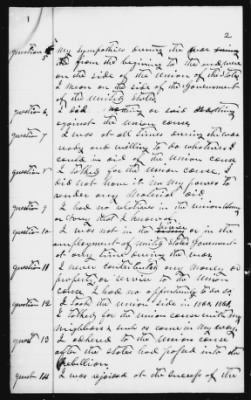 1
2
question 5 My sympathies during the war
from the beginning to the end were
on the side of the Union of the States
I mean on the side of the Government
of the United States
question 6, I did nothing or said nothing
against the Union cause
question 7 I was at all times during the war
ready and willing to do whatever I
could in aid of the Union cause
question 8 I talked for the Union cause. I
did not have it in my power to
render any material aid.
question 9 I had no relatives in the Union Army
or Navy that I know of
question 10 I was not in the service or in the
employment of United States Government
at any time during the war
question 11 I never contributed any money or
property or service to the Union
cause I had no opportunity to do so
question 12 I took the Union side in 1860 1861,
I talked for the Union cause with my
neighbors & such as came in my way
quest 13 I adhered to the Union cause
after the states had passed into the
Rebellion
quest 14 I was rejoiced at the success of the